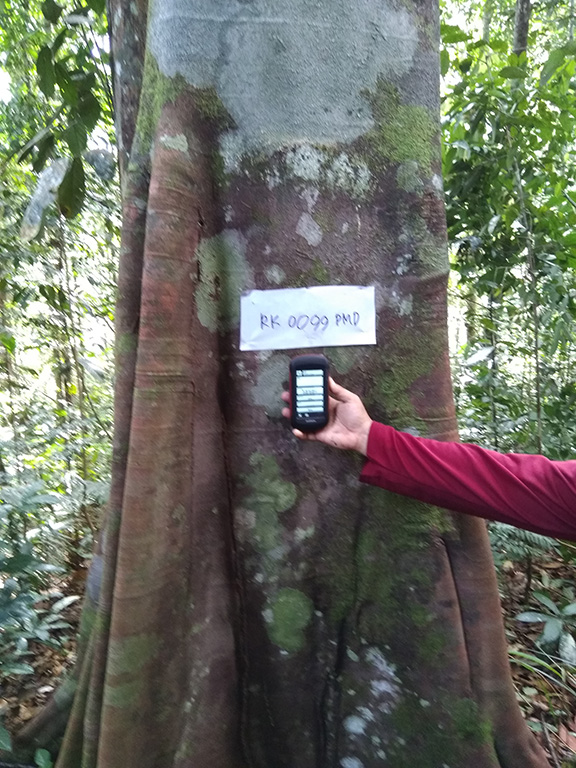 RK 0099 PMD